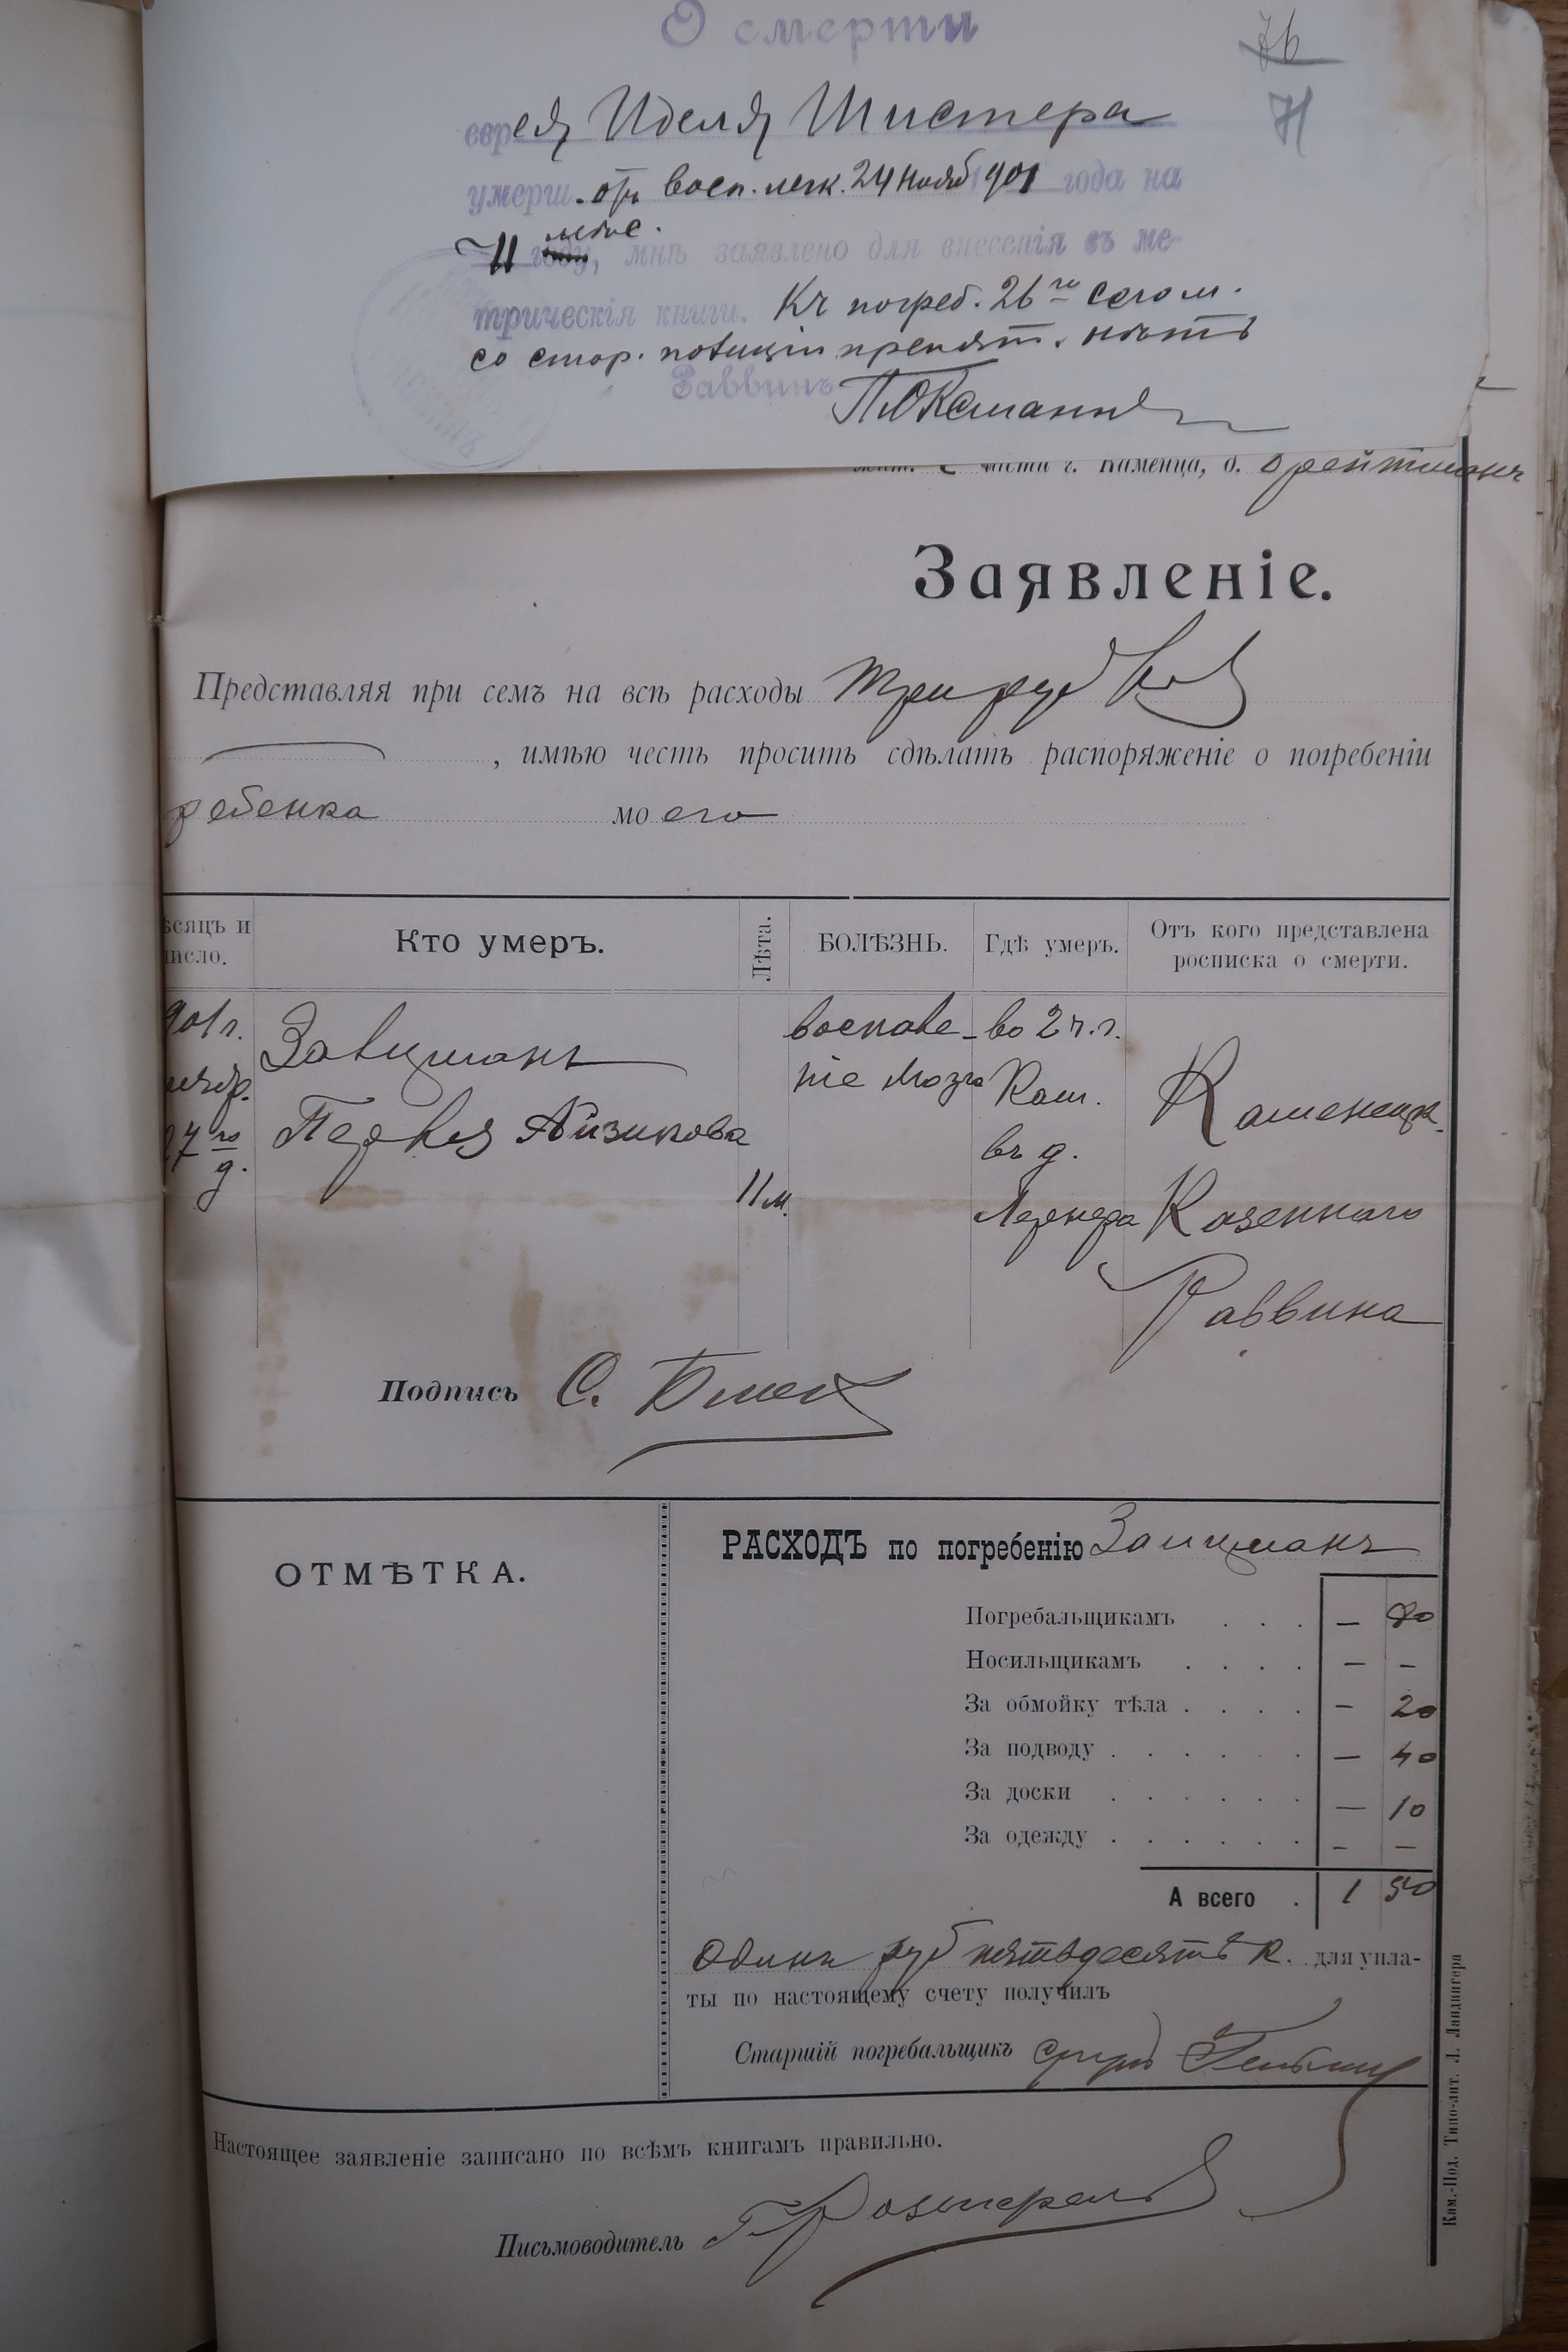 О смерти
76
71
еврея Иделя Шистера
умерш. отъ восп. легк. 24 Нояб 1901 года на
11 мѣс. году, мнѣ заявлено для внесенія въ ме-
трическія книги. Къ погреб. 26 го сего м.
со стор. полиціи препят. нѣтъ
Раввинъ
части г. Каменца, д.
Заявленіе.
Представляя при семъ на всѣ расходы три руб
, имѣю честь просить сдѣлать распоряженіе о погребеніи
ребенка моего
ѣсяцъ и число.
Кто умеръ.
Лѣта.
БОЛѢЗНЬ.
Гдѣ умеръ.
Отъ кого представлена росписка о смерти.
901 г.
27 го д.
Айзикова
11 м.
воспале-
ніе мозга
во 2 ч. г.
Кам.
въ д.
Каменецк.
Казеннаго
Раввина
Подпись С.
ОТМѢТКА.
РАСХОДЪ по погребенію Зайцманъ
Погребальщикамъ . . . — 80
Носильщикамъ . . . . — —
За обмойку тѣла . . . . — 20
За подводу . . . . . . — 40
За доски . . . . . . — 10
За одежду . . . . . . — —
А всего . 1 50
Одинъ руб пятьдесятъ к. для упла-
ты по настоящему счету получилъ
Старшій погребальщикъ
Настоящее заявленіе записано по всѣмъ книгамъ правильно.
Письмоводитель
Кам.-Под. Типо-лит. Л. Ландвигера